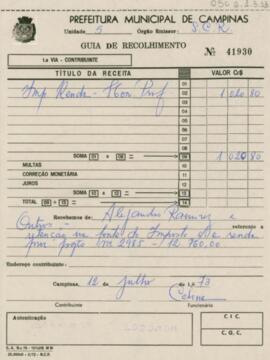 PREFEITURA MUNICIPAL DE CAMPINAS
Unidade 5 Órgão Emissor: S.C.R.
GUIA DE RECOLHIMENTO
1.a VIA - CONTRIBUINTE Nº 41930
TÍTULO DA RECEITA VALOR Cr$
01 Imp. Renda - Hon. Prof 1.020,80
02
03
04
05
06
07
08
SOMA 01 a 08 = 09 1.020,80
MULTAS 10
CORREÇÃO MONETÁRIA 11
JUROS 12
SOMA 10 a 12 = 13
TOTAL 09 + 13 = 14
Recebemos de: Alejandro Ramirez e
Outros referente a
retenção na fonte do Imposto de renda
2985 - 12.760,00
Endereço contribuinte:
Campinas, 12 de julho de 1.973
Contribuinte Funcionário
Autenticação C I C.
C. G. C.